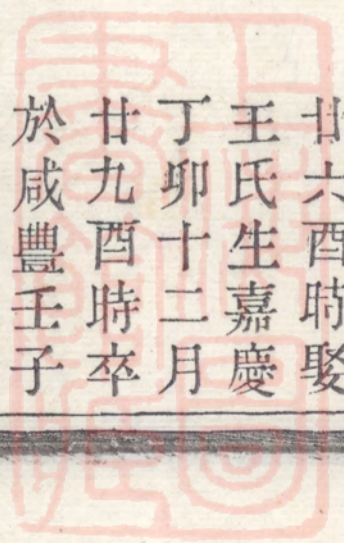 廿六酉時娶
王氏生嘉慶
丁卯十二月
廿九酉時卒
於咸豐壬子